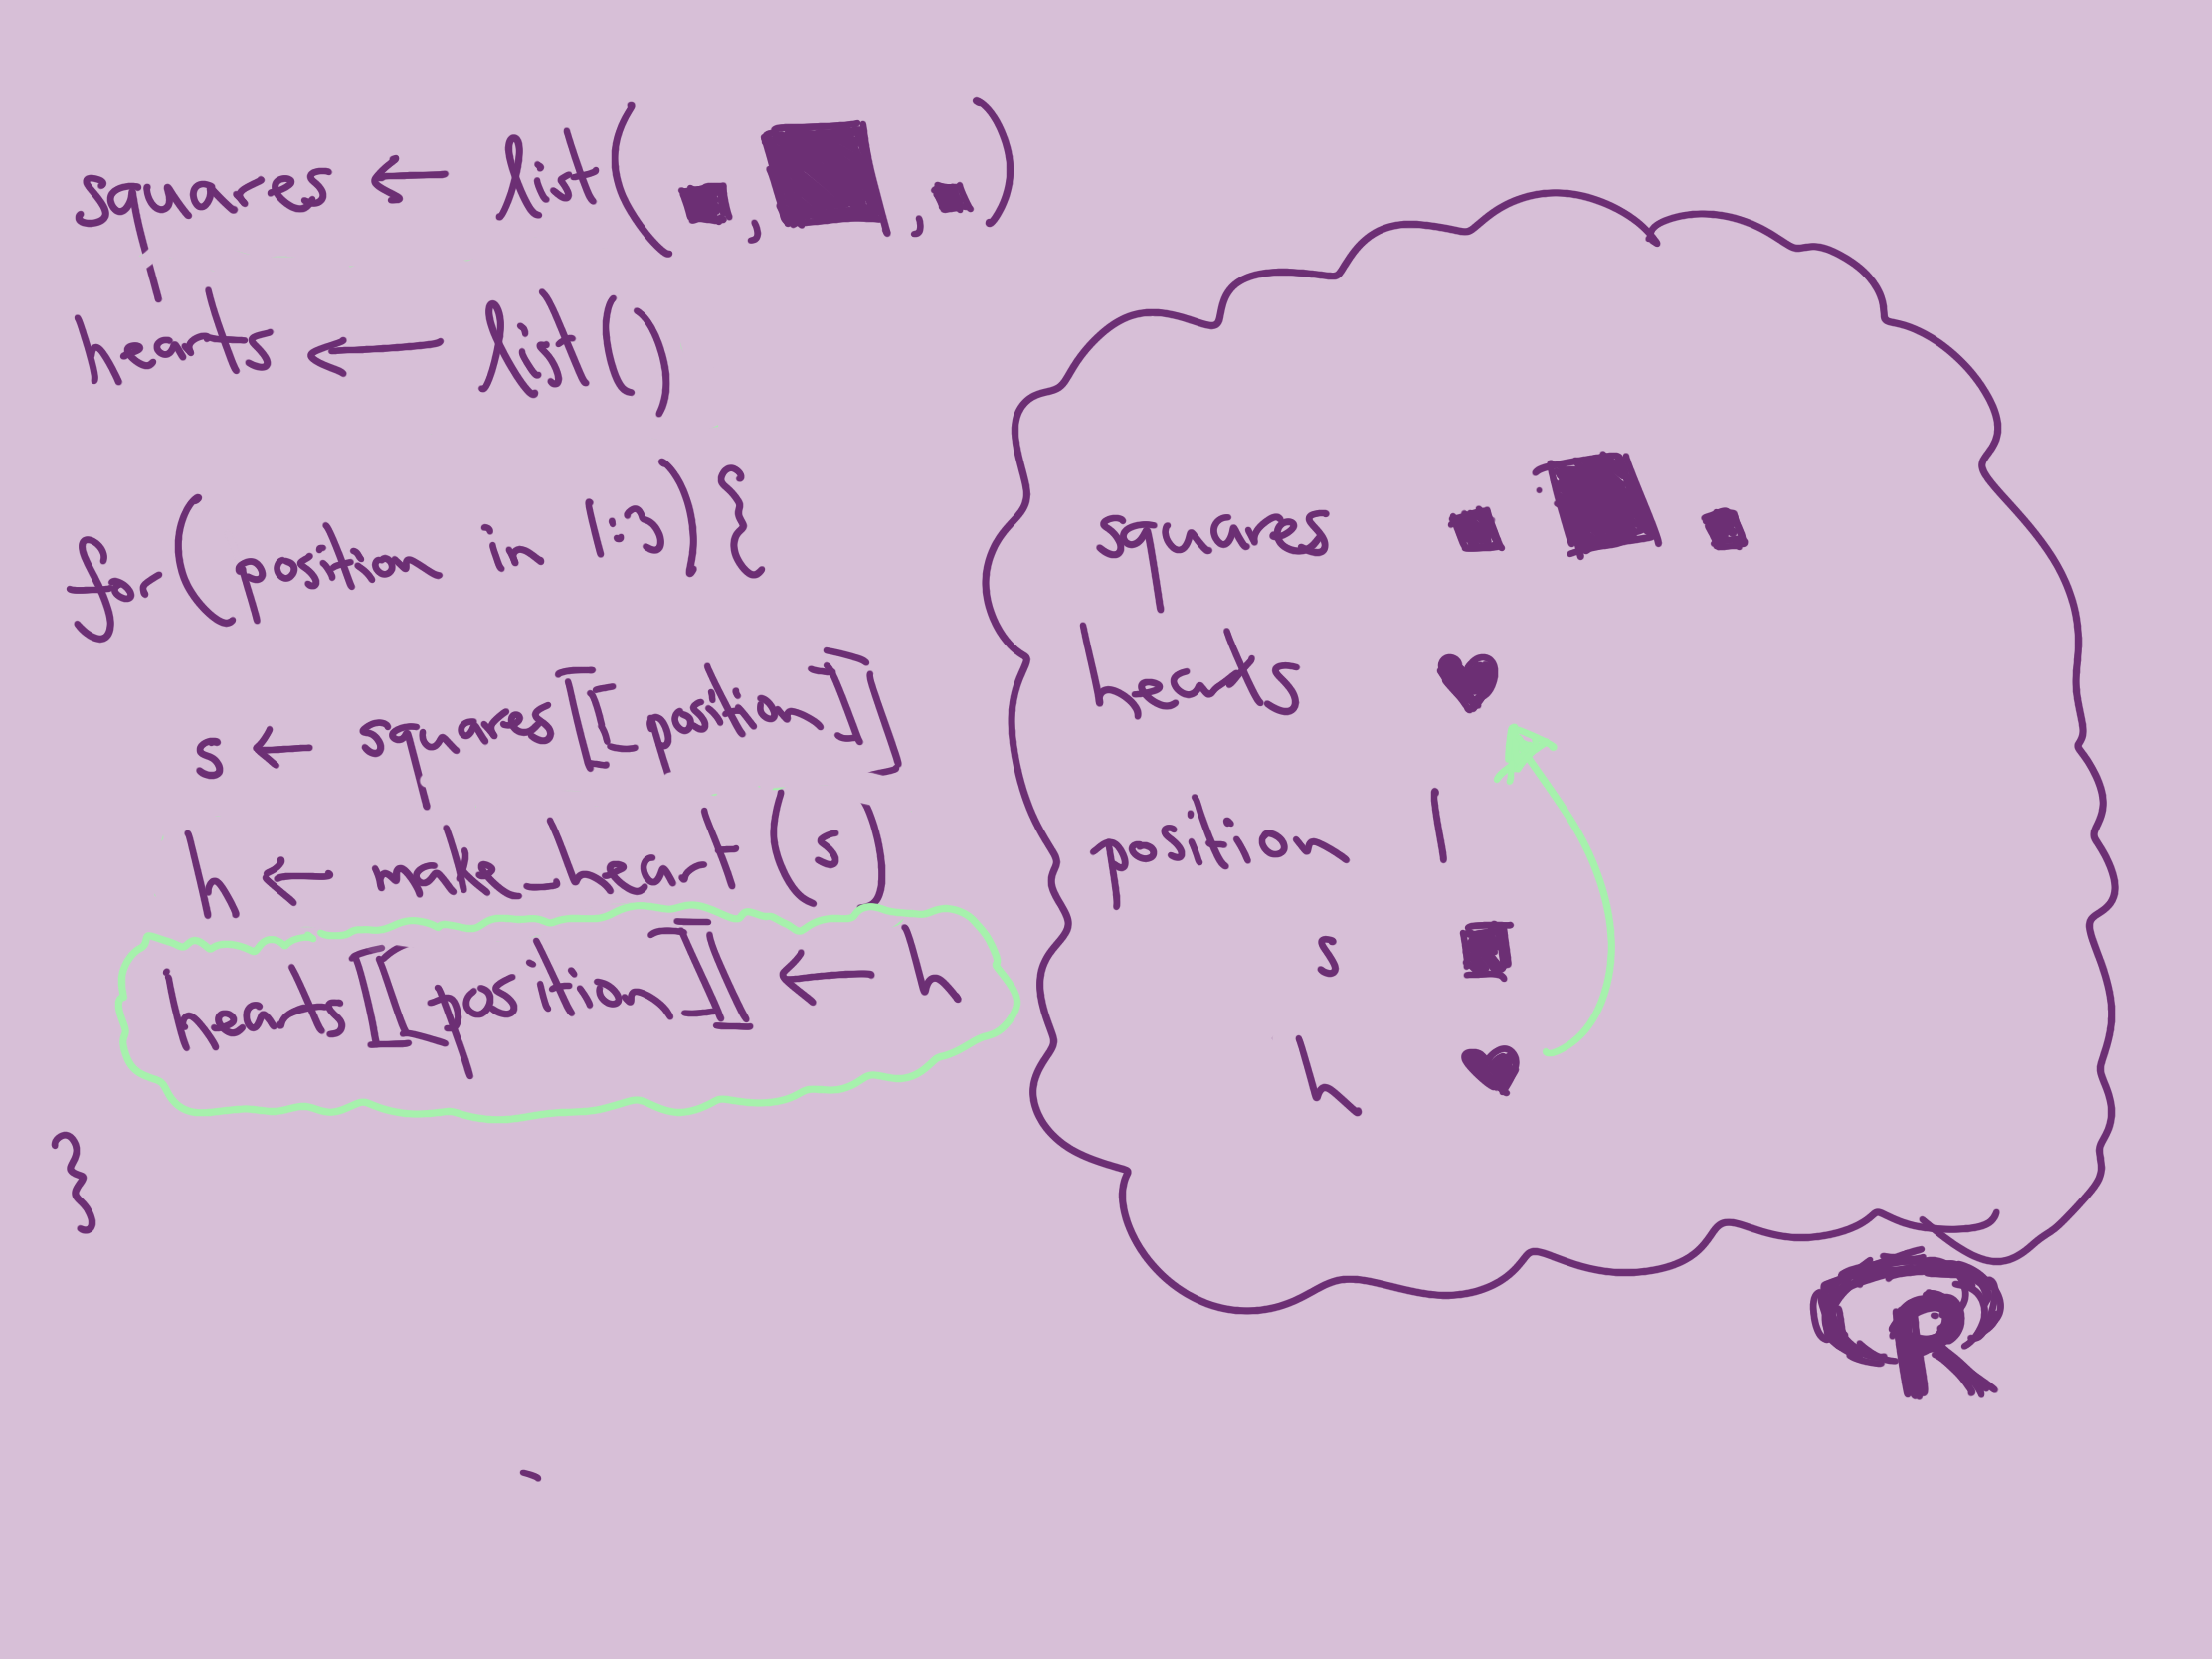 squares ← list(■, ■, ■)
hearts ← list()
for(position in 1:3){
s ← squares[[position]]
h ← make_heart(s)
hearts[[position]] ← h
}
squares ■ ■ ■
hearts ♥
position 1
s ■
h ♥
R